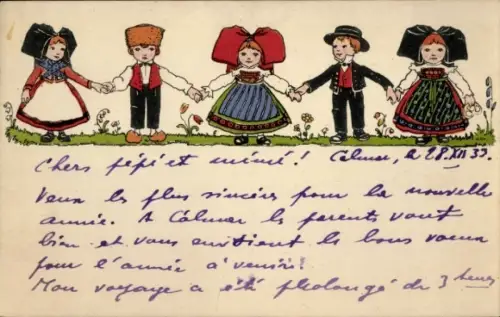 Chers pépé et mémé! Colmar, le 28.XII 33.
Vœux les plus sincères pour la nouvelle
année. A Colmar les parents vont
bien et vous envoient les bons vœux
pour l'année à venir!
Mon voyage a été prolongé de 3 heures